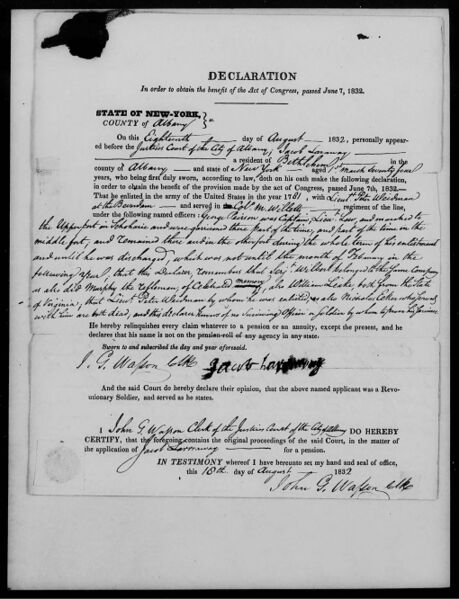 DECLARATION
In order to obtain the benefit of the Act of Congress, passed June 7, 1832.
STATE OF NEW-YORK,
COUNTY of Albany
On this Eighteenth day of August 1832, personally appeared
before the Justices Court of the City of Albany, Jacob Larraway
a resident of Bethlehem in the
county of Albany and state of New York aged
years, who being first duly sworn, according to law, doth on his oath make the following declaration,
in order to obtain the benefit of the provision made by the act of Congress, passed June 7th, 1832
That he enlisted in the army of the United States in the year 1781, with Lieut Peter Weidman
at the and served in Col M. Willett regiment of the line,
under the following named officers: George Pearson was Captain, Lieut and marched to
the Upper fort in Schoharie and were quartered there part of the time, and part of the time in the
middle fort, and remained there and in the other fort during the whole term of his enlistment
and until he was discharged, which was not until the month of February in the
following year, that this Declarer, remembers that belonged to the same company
as also did Murphy the rifleman, of celebrated memory, also William both from the State
of Virginia; that Lieut Peter Weidman by whom he was enlisted, as also Nicholas who served
with him are both dead, and this declarer knows of no surviving officer or soldier by whom
He hereby relinquishes every claim whatever to a pension or an annuity, except the present, and he
declares that his name is not on the pension-roll of any agency in any state.
Sworn to and subscribed the day and year aforesaid.
J. G. Wasson Clk Jacob Larraway
And the said Court do hereby declare their opinion, that the above named applicant was a Revo-
lutionary Soldier, and served as he states.
I John G Wasson Clerk of the Justices Court of the City of Albany DO HEREBY
CERTIFY, that the foregoing contains the original proceedings of the said Court, in the matter of
the application of Jacob Larraway for a pension.
IN TESTIMONY whereof I have hereunto set my hand and seal of office,
this 18th day of August 1832
John G. Wasson Clk